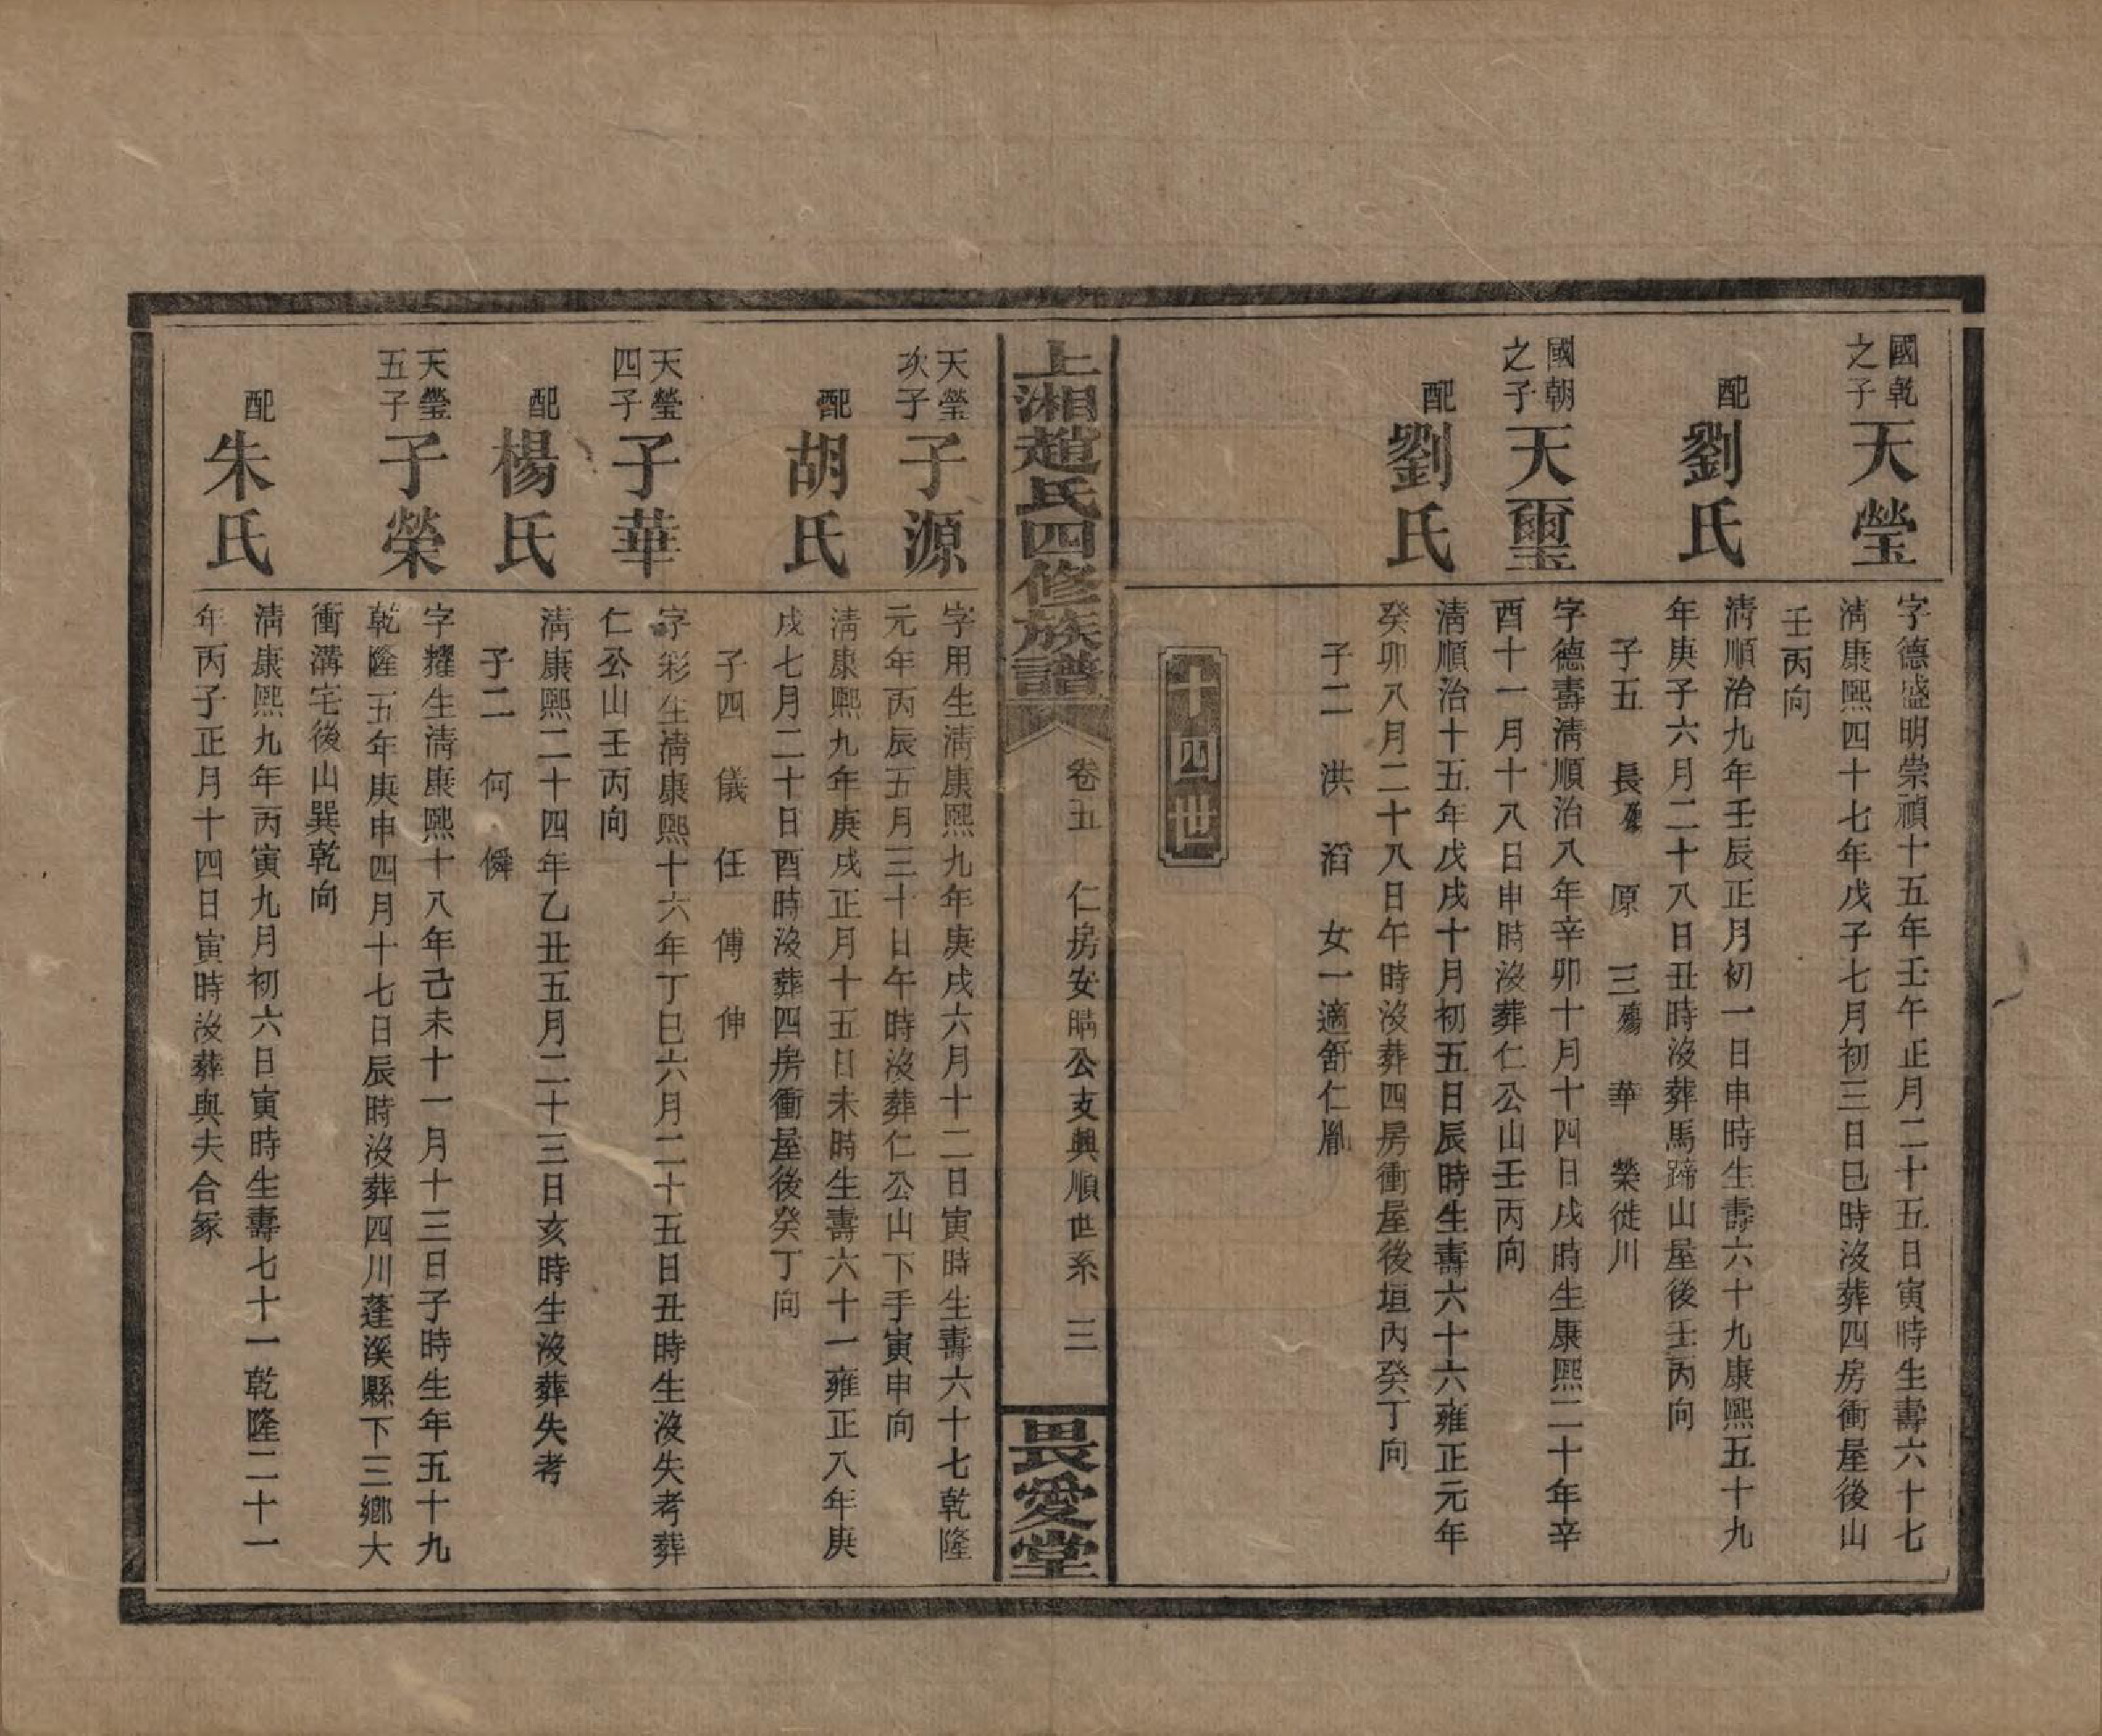 國乾
之子
天瑩
字德盛明崇禎十五年壬午正月二十五日寅時生壽六十七
清康熙四十七年戊子七月初三日巳時沒葬四房衝屋後山
壬丙向
配
劉氏
清順治九年壬辰正月初一日申時生壽六十九康熙五十九
年庚子六月二十八日丑時沒葬馬蹄山屋後壬丙向
子五 長殤 原 三殤 華 榮徙川
國朝
之子
天璽
字德壽清順治八年辛卯十月十四日戌時生康熙二十年辛
酉十一月十八日申時沒葬仁公山壬丙向
配
劉氏
清順治十五年戊戌十月初五日辰時生壽六十六雍正元年
癸卯八月二十八日午時沒葬四房衝屋後垣內癸丁向
子二 洪 滔 女一適舒仁胤
十四世
上湘趙氏四修族譜
卷五 仁房安購公支興順世系 三
畏愛堂
天瑩
次子
子源
字用生清康熙九年庚戌六月十二日寅時生壽六十七乾隆
元年丙辰五月三十日午時沒葬仁公山下手寅申向
配
胡氏
清康熙九年庚戌正月十五日未時生壽六十一雍正八年庚
戌七月二十日酉時沒葬四房衝屋後癸丁向
子四 儀 任 傅 伸
天瑩
四子
子華
字彩生清康熙十六年丁巳六月二十五日丑時生沒失考葬
仁公山壬丙向
配
楊氏
清康熙二十四年乙丑五月二十三日亥時生沒葬失考
子二 何 僯
天瑩
五子
子榮
字耀生清康熙十八年己未十一月十三日子時生年五十九
乾隆五年庚申四月十七日辰時沒葬四川蓬溪縣下三鄉大
衝溝宅後山巽乾向
配
朱氏
清康熙九年丙寅九月初六日寅時生壽七十一乾隆二十一
年丙子正月十四日寅時沒葬與夫合冢